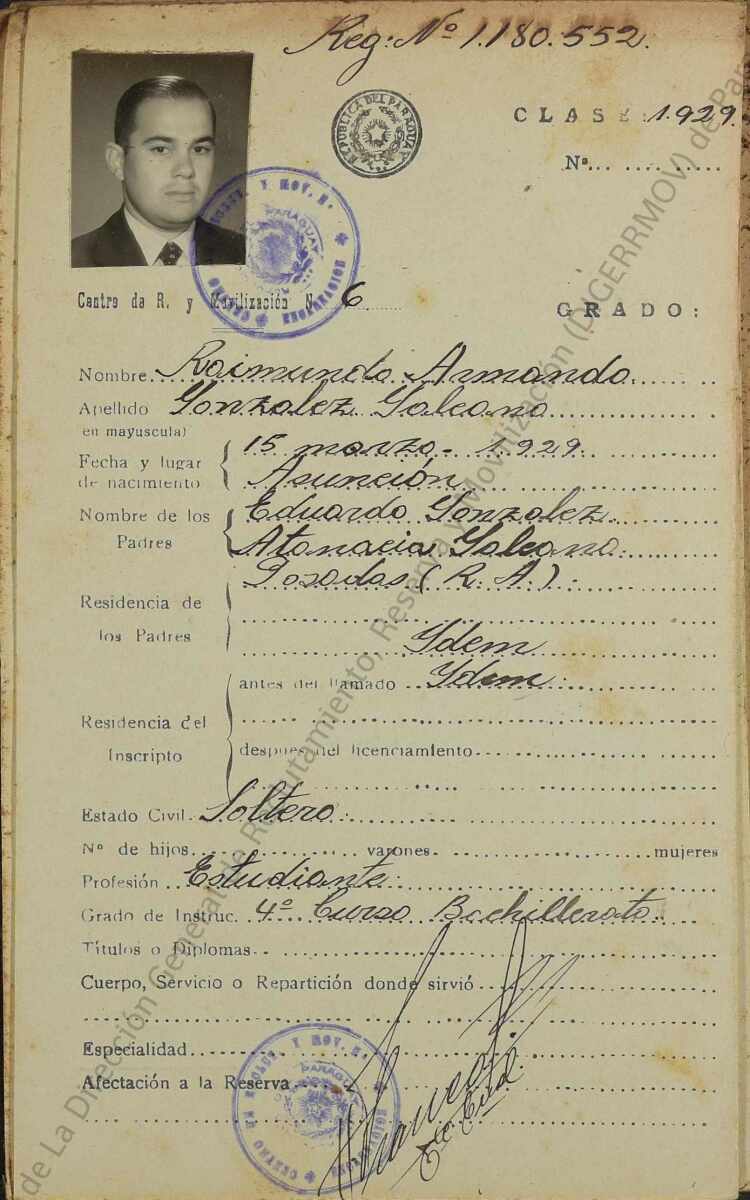 Reg: Nº 1.180.552.
REPUBLICA DEL PARAGUAY
CLASE 1.929.
Nº
Centro de R. y Movilización N. 6
GRADO:
Nombre Raimundo Armando
Apellido Gonzalez Galeano
en mayuscula)
Fecha y lugar 15 marzo - 1.929
de nacimiento Asunción
Nombre de los Eduardo Gonzalez
Padres Atanacia Galeano
Posadas (R. A.)
Residencia de
los Padres Ydem
antes del llamado Ydem
Residencia del
Inscripto despues del licenciamiento
Estado Civil Soltero
Nº de hijos varones mujeres
Profesión Estudiante
Grado de Instruc. 4º Curso Bachillerato
Títulos o Diplomas
Cuerpo, Servicio o Repartición donde sirvió
Especialidad
Afectación a la Reserva
de La Dirección General de Reclutamiento, Reserva y Movilización (DIGERRMOV) de Par